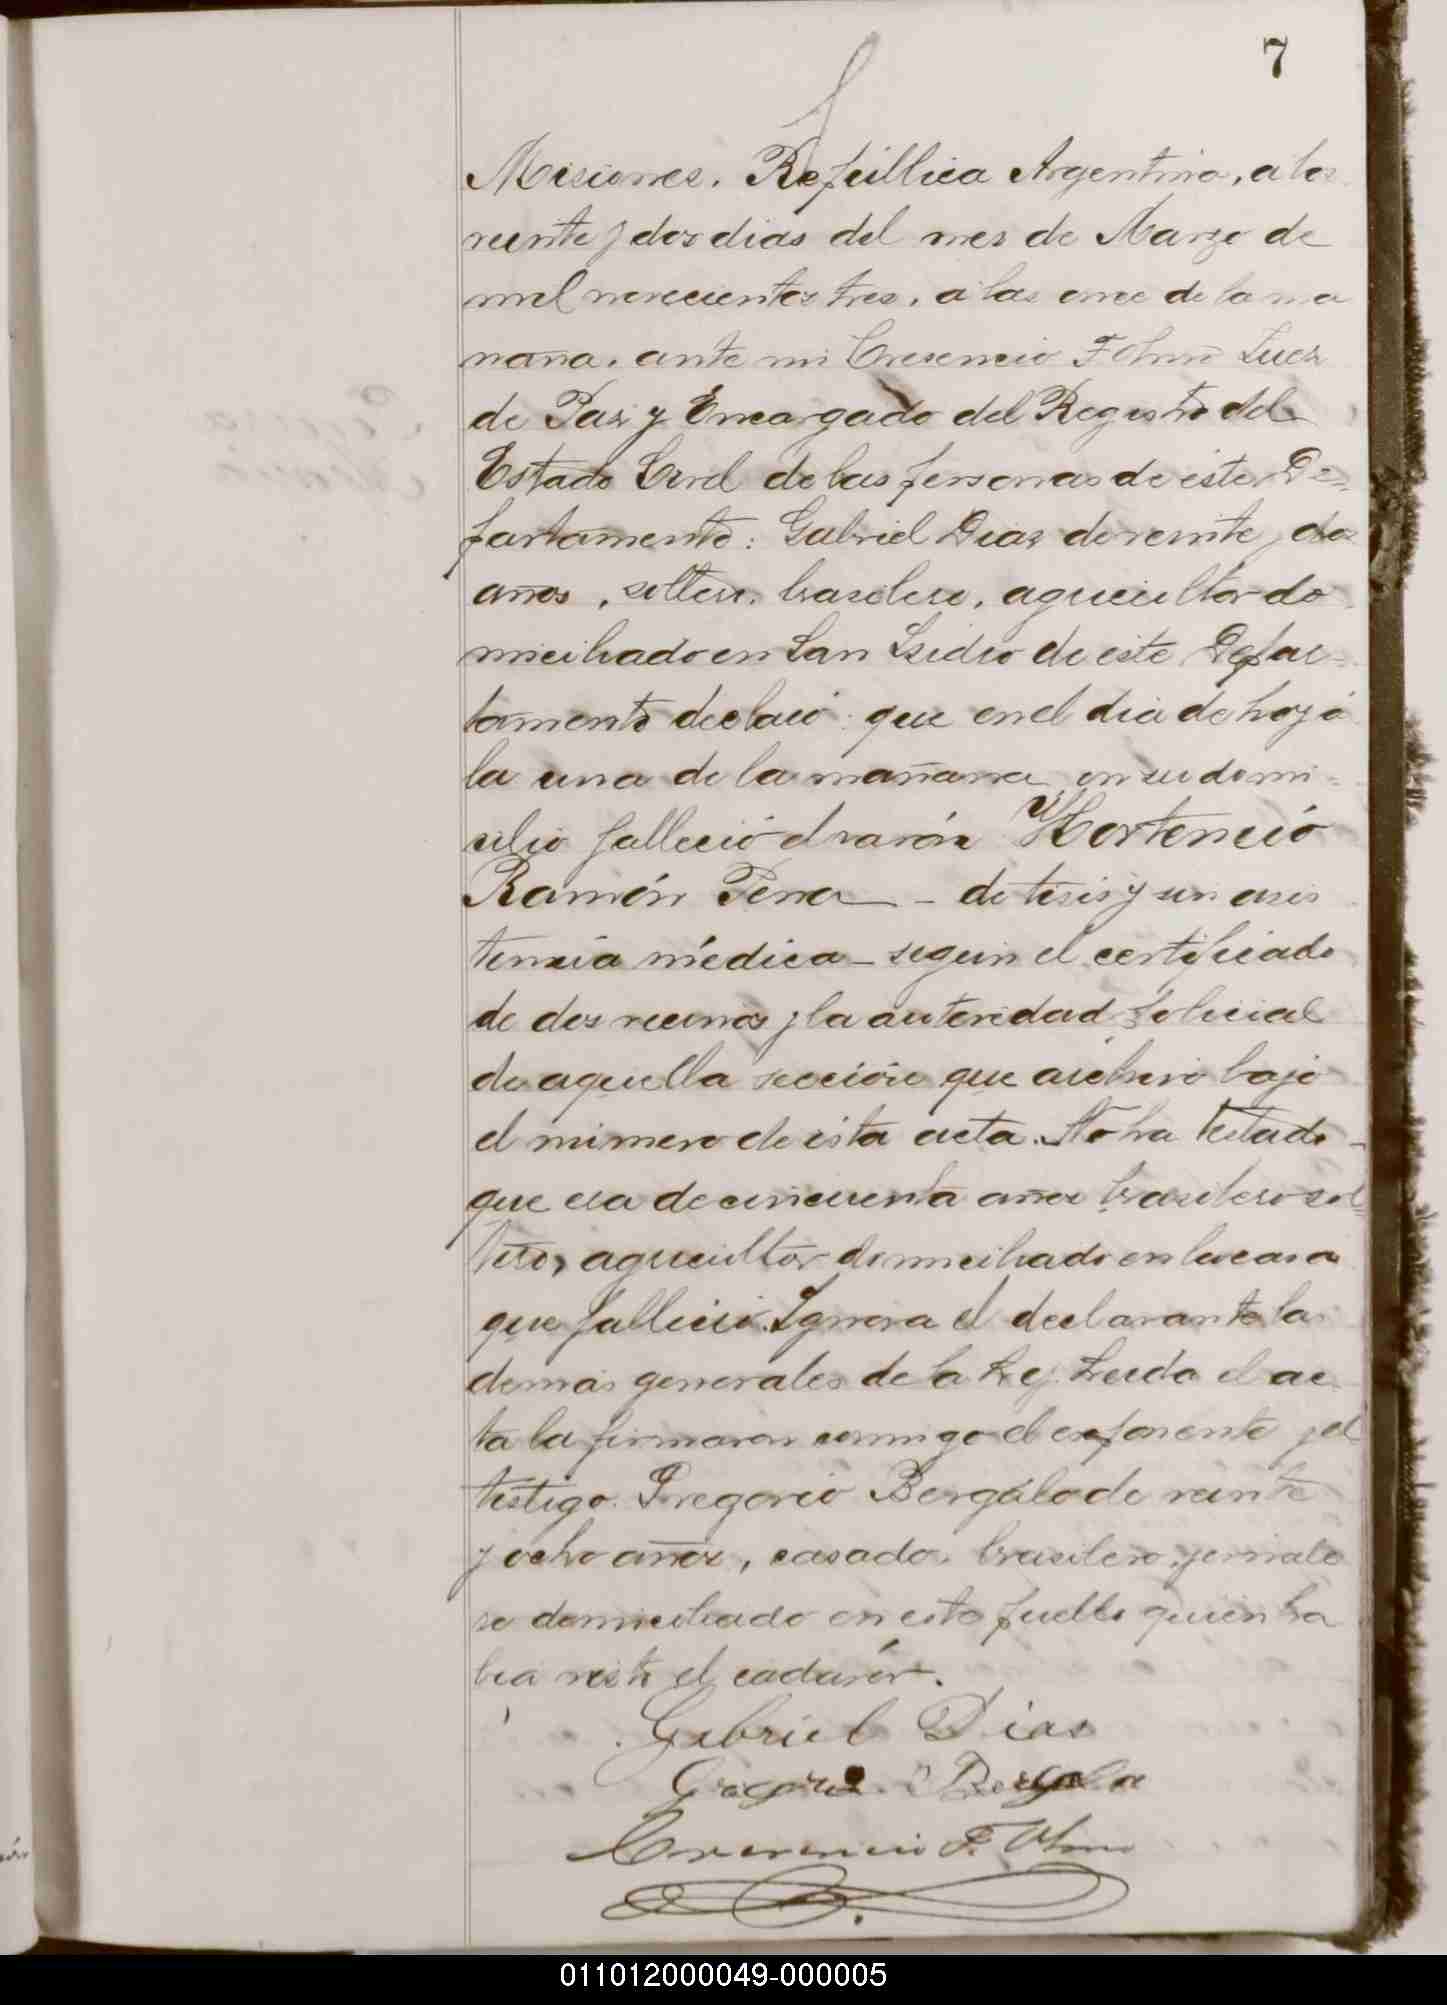 7
Misiones. República Argentina, a los
veinte y dos dias del mes de Marzo de
mil novecientos tres, a las once de la ma
ñana, ante mi Cresencio F Olmo Juez
de Paz y Encargado del Registro del
Estado Civil de las personas de este De=
partamento: Gabriel Dias de veinte y dos
años, soltero, brasilero, agricultor do
miciliado en San Isidro de este Depar=
tamento declaró: que en el dia de hoy á
la una de la mañana en su domi=
cilio falleció el varón Hortencio
Ramón Pena - de tisis y sin asis
tencia médica - segun el certificado
de dos vecinos y la autoridad policial
de aquella sección que archivo bajo
el número de esta acta. No ha testado -
que era de cincuenta años brasilero sol=
tero, agricultor domiciliado en la casa
que falleció. Ignora el declarante las
demás generales de la Ley. Leida el ac
ta la firmaron conmigo el exponente y el
testigo Gregorio Bergalo de veinte
y ocho años, casado, brasilero, jornale
ro domiciliado en este pueblo quien ha
bia visto el cadavér.
Gabriel Dias
Bergala
Cresencio F. Olmo
011012000049-000005